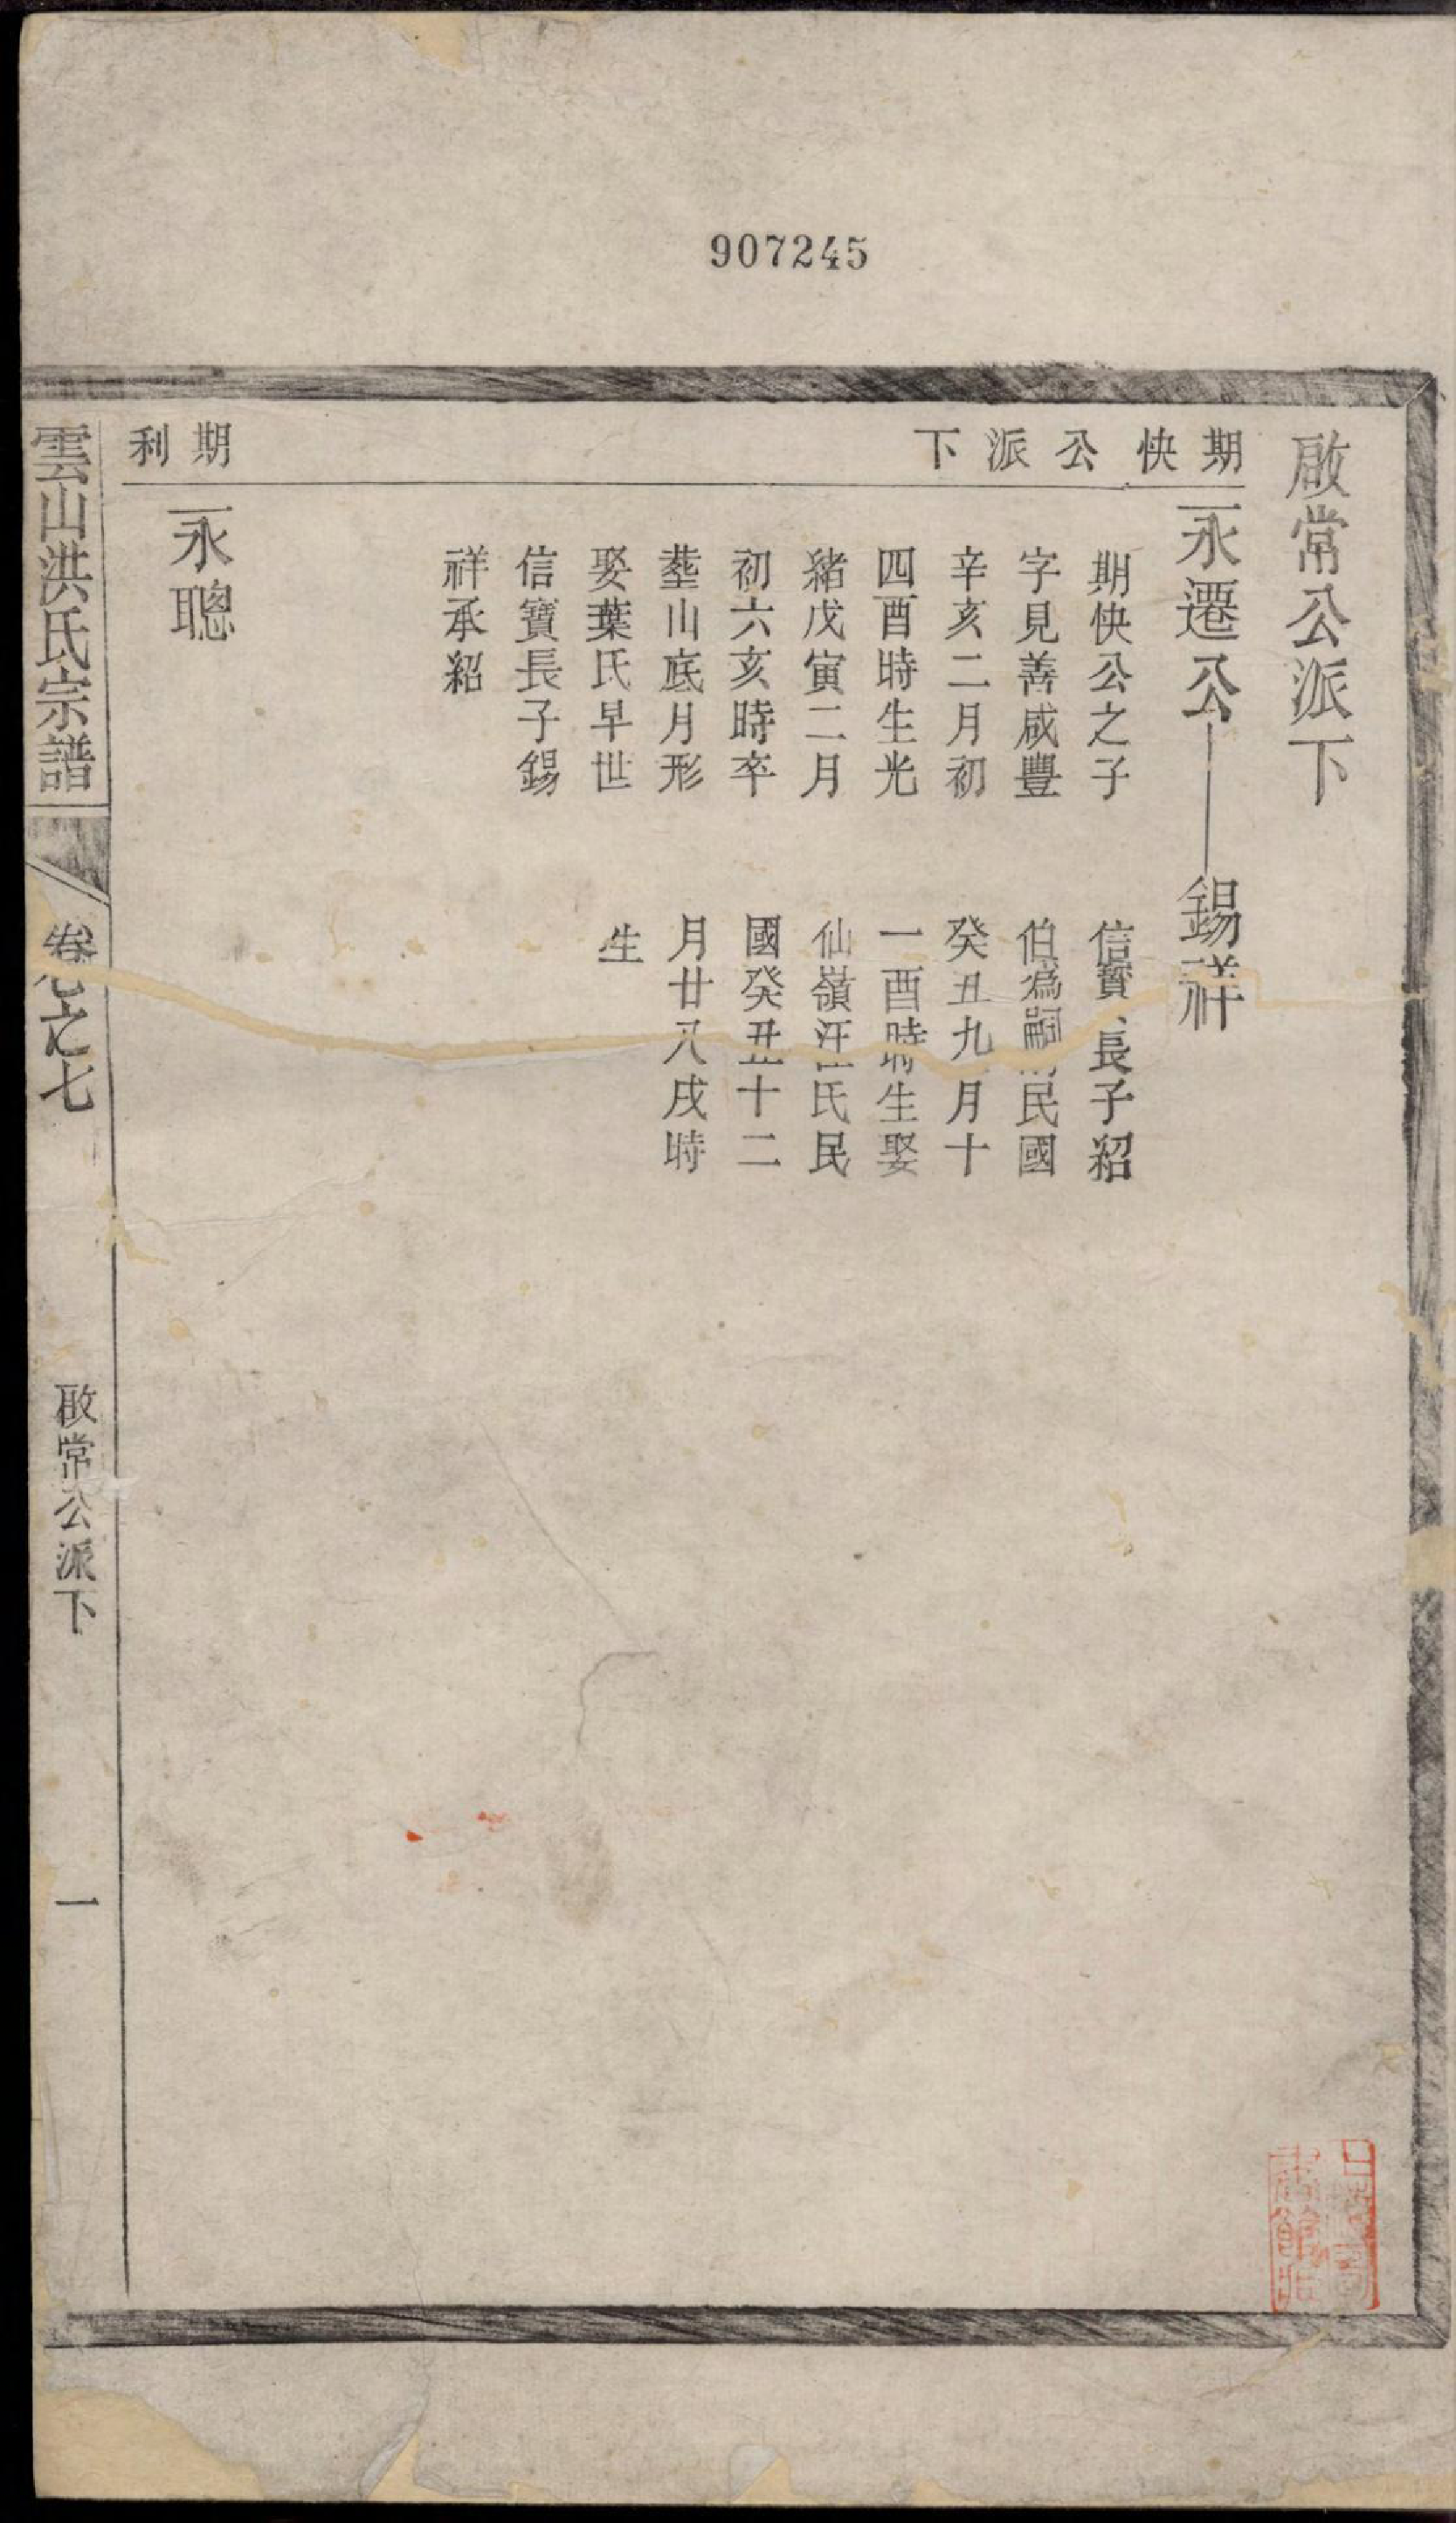 907245
啟常公派下
期快公派下
永遷公
錫祥
期快公之子
字見善咸豐
辛亥二月初
四酉時生光
緒戊寅二月
初六亥時卒
塟山底月形
娶葉氏早世
信寶長子錫
祥承紹
信寶長子紹
伯為嗣民國
癸丑九月十
一酉時生娶
仙嶺汪氏民
國癸丑十二
月廿八戌時
生
期利
永聰
雲山洪氏宗譜
卷之七
啟常公派下
一